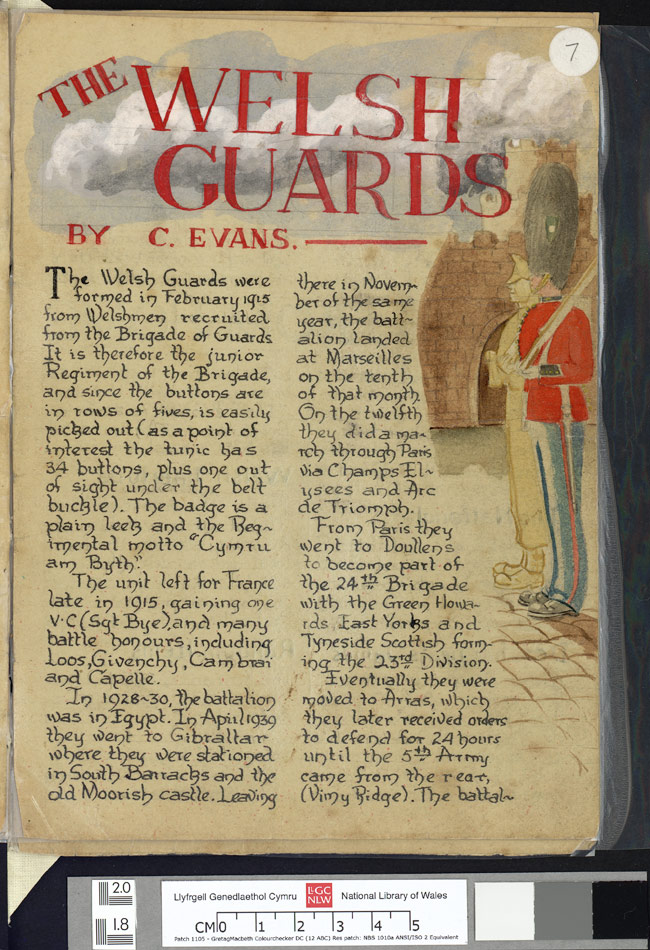 7
THE
WELSH
GUARDS
BY C. EVANS.
The Welsh Guards were
formed in February 1915
from Welshmen recruited
from the Brigade of Guards
It is therefore the junior
Regiment of the Brigade,
and since the buttons are
in rows of fives, is easily
picked out (as a point of
interest the tunic has
34 buttons, plus one out
of sight under the belt
buckle). The badge is a
plain leek and the Reg-
imental motto "Cymru
am Byth".
The unit left for France
late in 1915, gaining one
V.C (Sgt Bye), and many
battle honours, including
Loos, Givenchy, Cambrai
and Capelle.
In 1928-30, the battalion
was in Egypt. In Apil 1939
they went to Gibraltar
where they were stationed
in South Barracks and the
old Moorish castle. Leaving
there in Novem-
ber of the same
year, the batt-
alion landed
at Marseilles
on the tenth
of that month.
On the twelfth
they did a ma-
rch through Paris
via Champs El-
ysees and Arc
de Triomph.
From Paris they
went to Doullens
to become part of
the 24th Brigade
with the Green Howa-
rds, East Yorks and
Tyneside Scottish form-
ing the 23rd Division.
Eventually they were
moved to Arras, which
they later received orders
to defend for 24 hours
until the 5th Army
came from the rear,
(Vimy Ridge). The battal-
2.0
1.8
Llyfrgell Genedlaethol Cymru
LlGC
NLW
National Library of Wales
CM 0 1 2 3 4 5
Patch 1105 - GretagMacbeth Colourchecker DC (12 ABC) Res patch: NBS 1010a ANSI/ISO 2 Equivalent